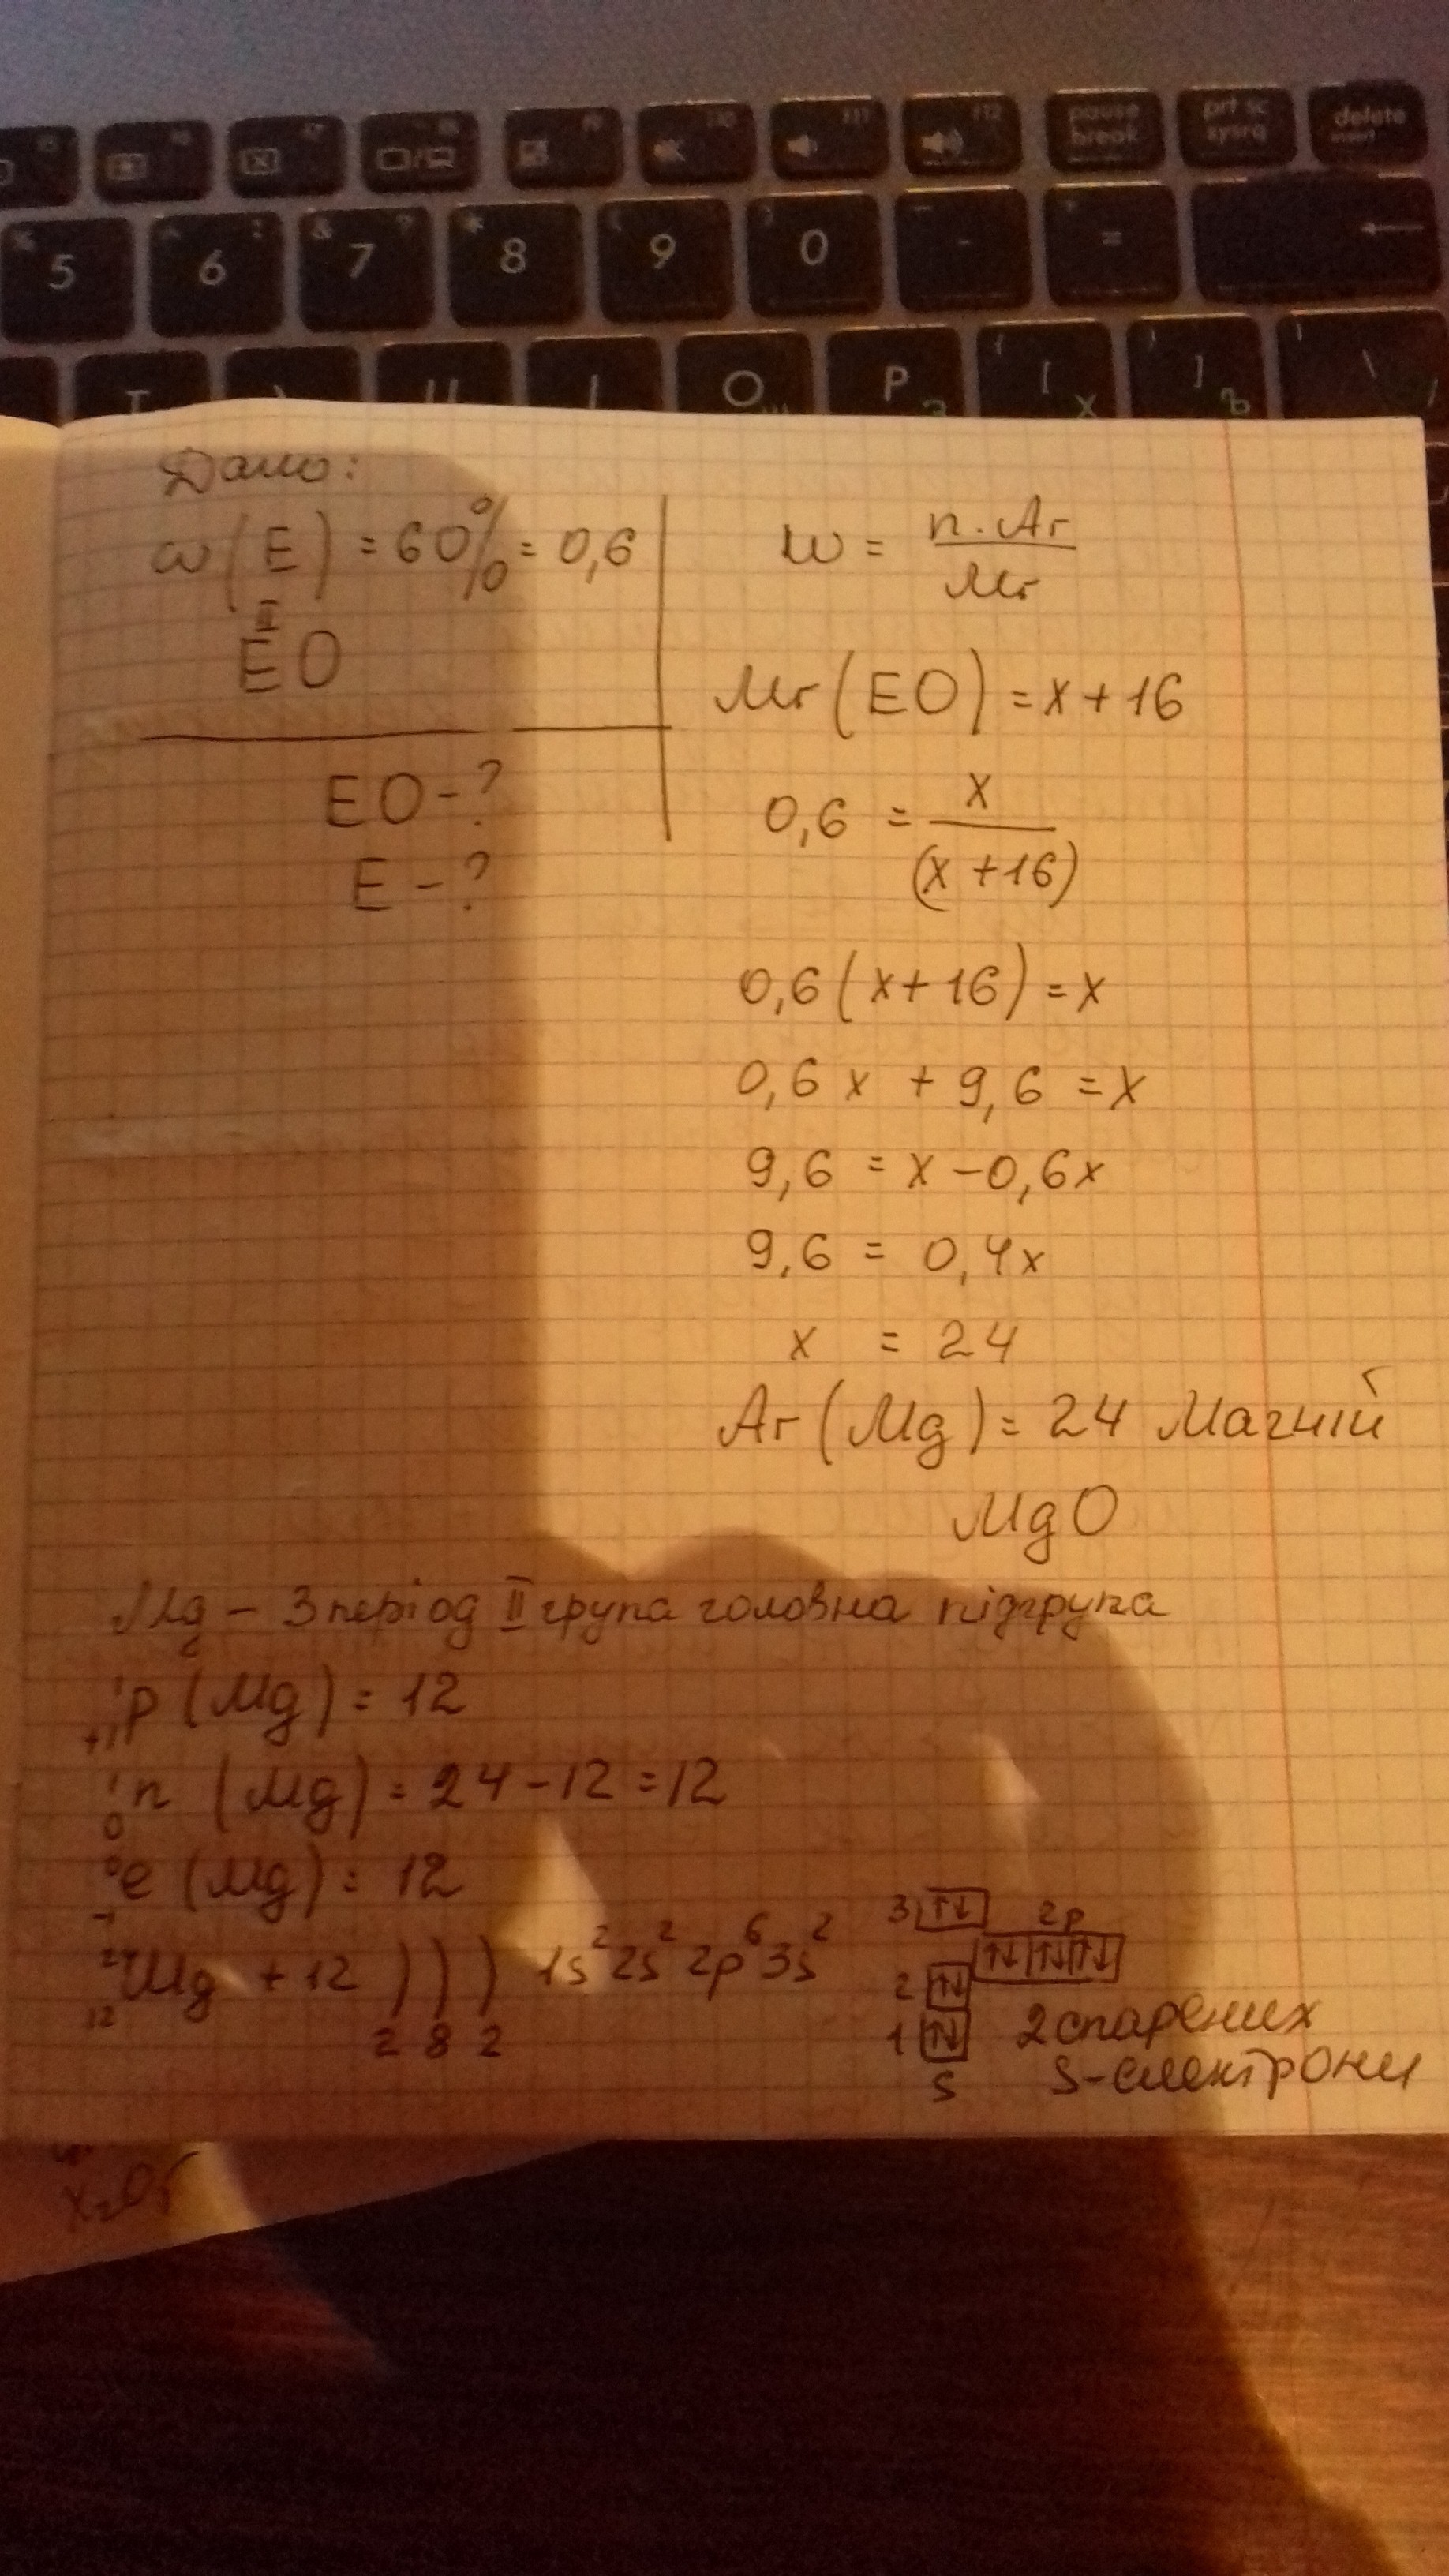 F9 F10 F11 F12 pause break prt sc sysrq delete insert
5 6 7 8 9 0 - =
O P З [ Х ] Ъ \
Дано:
ω(E) = 60% = 0,6
II
EO
EO - ?
E - ?
W = n·Ar / Mr
Mr(EO) = x + 16
0,6 = x / (x + 16)
0,6(x + 16) = x
0,6x + 9,6 = x
9,6 = x - 0,6x
9,6 = 0,4x
x = 24
Ar(Mg) = 24 Магній
MgO
Mg - 3 період II група головна підгрупа
¹₊₁p (Mg) = 12
¹₀n (Mg) = 24 - 12 = 12
⁰₋₁e (Mg) = 12
²⁴₁₂Mg +12 ) ) ) 1s² 2s² 2p⁶ 3s²
2 8 2
3 ↑↓ 2p
2 ↑↓ ↑↓ ↑↓ ↑↓
1 ↑↓ 2 спарених
S s-електрони